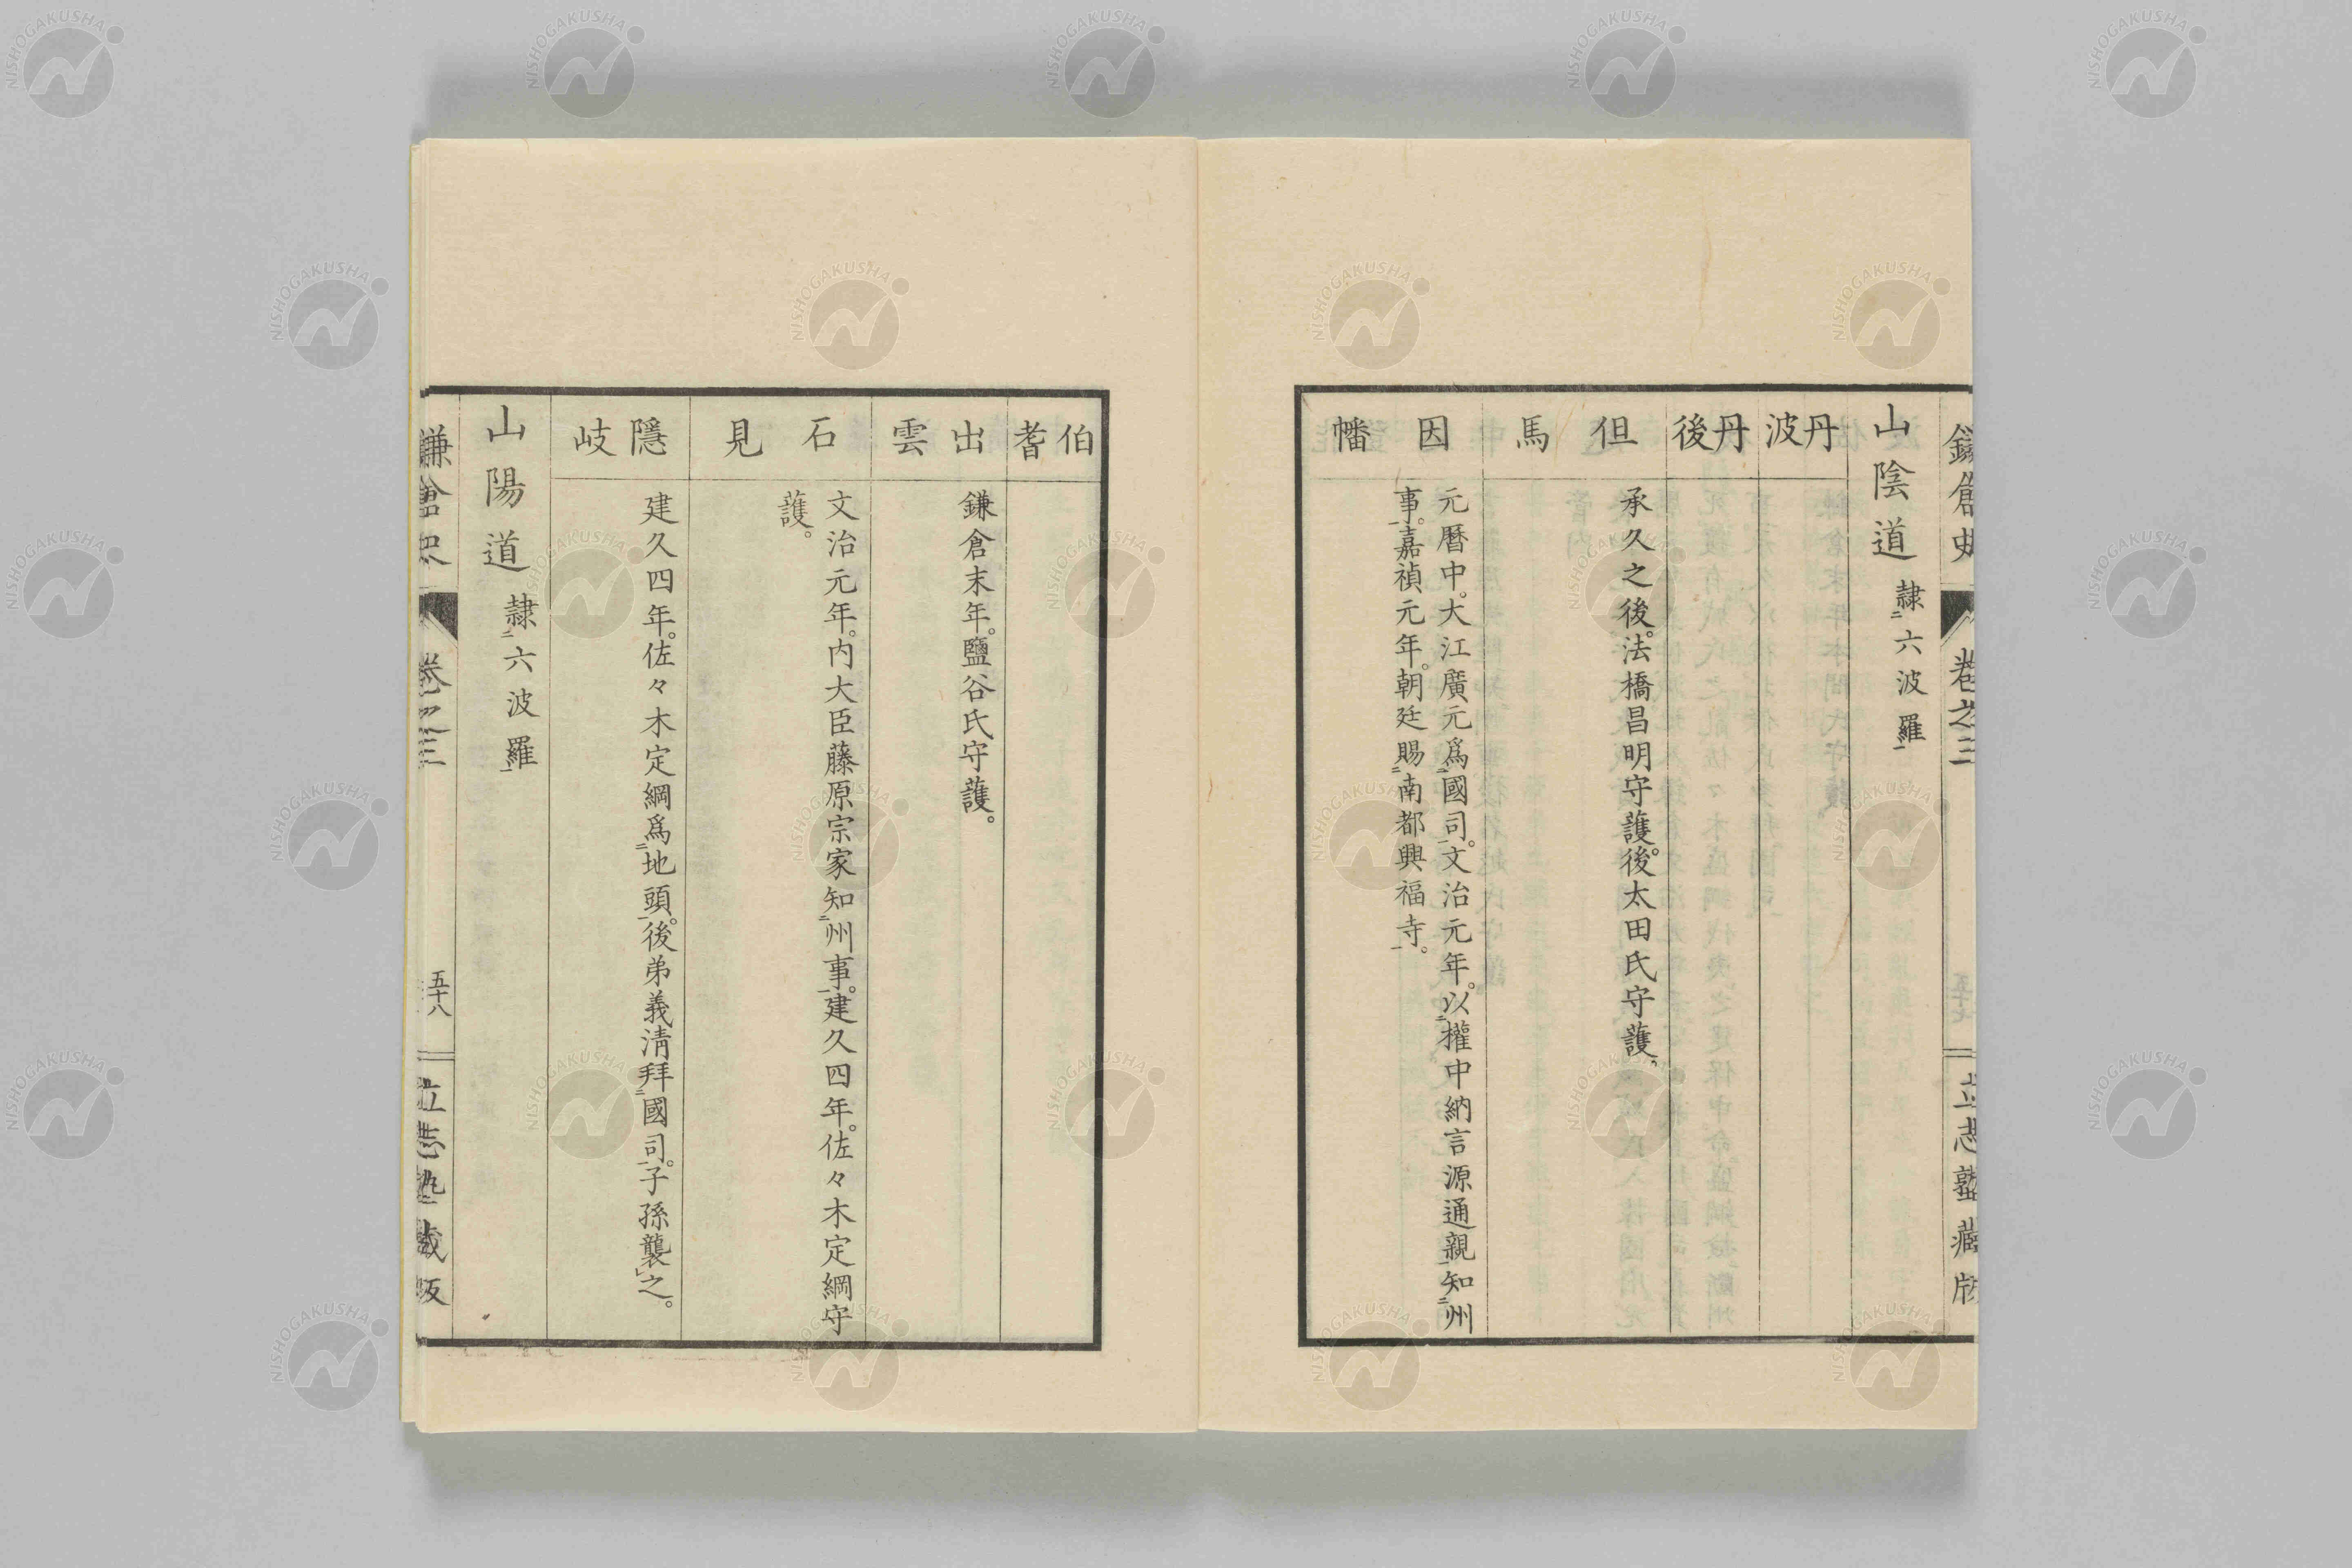 鎌倉史 卷之三 立志塾藏版
山陰道 隷二六波羅一
丹波
丹後
但馬
承久之後。法橋昌明守護。後太田氏守護。
因幡
元曆中。大江廣元爲二國司一。文治元年。以二權中納言源通親一知二州
事一。嘉禎元年。朝廷賜二南都興福寺一。
伯耆
出雲
鎌倉末年。鹽谷氏守護。
石見
文治元年。内大臣藤原宗家知二州事一。建久四年。佐々木定綱守
護。
隱岐
建久四年。佐々木定綱爲二地頭一。後弟義淸拜二國司一。子孫襲レ之。
山陽道 隷二六波羅一
鎌倉史 卷之三 五十八 立志塾藏版
NISHOGAKUSHA